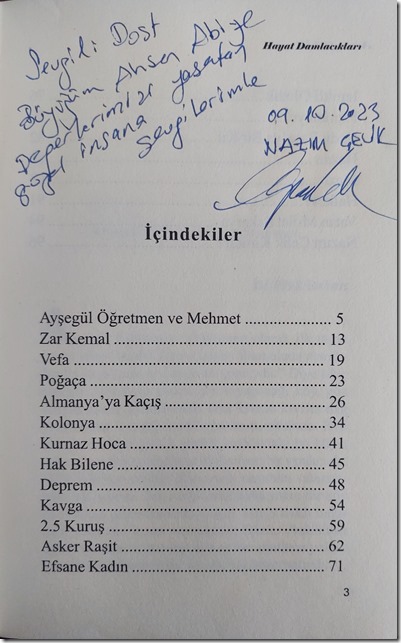 Hayat Damlacıkları
Sevgili Dost
Büyüğüm Ahsen Abiye
Değerlerimizi yaşatan
güzel insana
sevgilerimle
09.10.2023
NAZIM ÇELİK
İçindekiler
Ayşegül Öğretmen ve Mehmet ..................... 5
Zar Kemal ..................................................... 13
Vefa ................................................................ 19
Poğaça ............................................................ 23
Almanya'ya Kaçış ......................................... 26
Kolonya .......................................................... 34
Kurnaz Hoca .................................................. 41
Hak Bilene ..................................................... 45
Deprem ........................................................... 48
Kavga ............................................................. 54
2.5 Kuruş ........................................................ 59
Asker Raşit ..................................................... 62
Efsane Kadın .................................................. 71
3